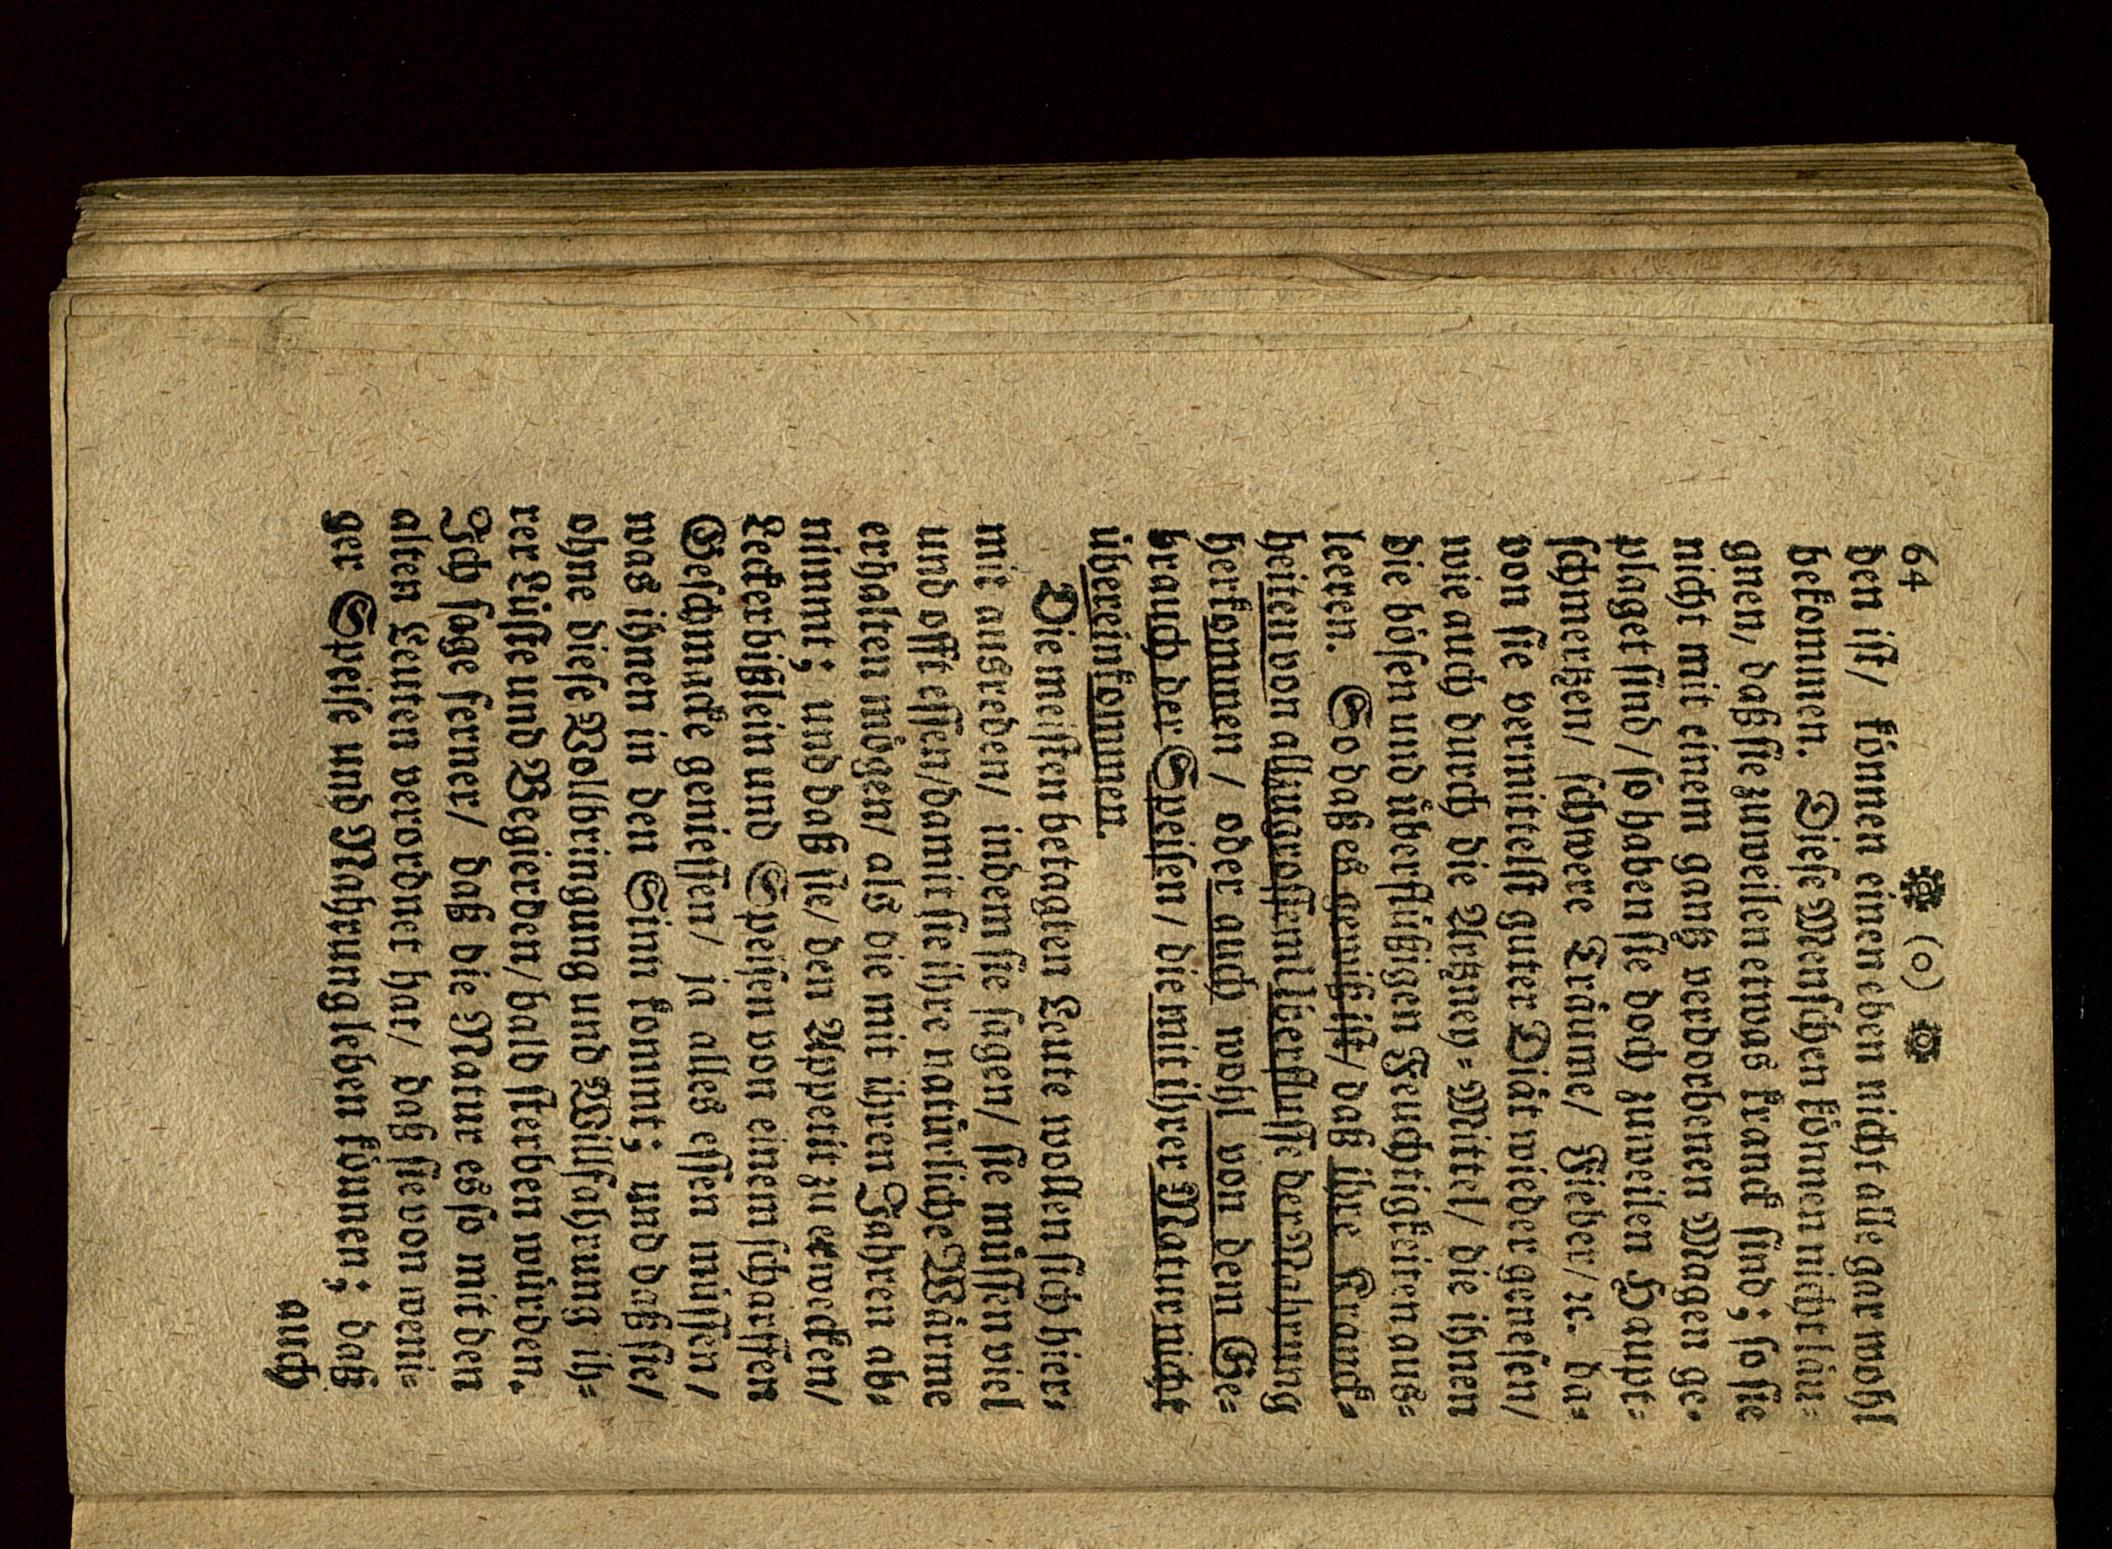 64 ❁ (o) ❁
den iſt/ können einen eben nicht alle gar wohl
bekommen. Dieſe Menſchen können nicht läu⸗
gnen, daß ſie zuweilen etwas kranck ſind; ſo ſie
nicht mit einem gantz verdorbenen Magen ge⸗
plaget ſind/ ſo haben ſie doch zuweilen Haupt⸗
ſchmertzen/ ſchwere Träume/ Fieber/ ꝛc. da⸗
von ſie vermittelſt guter Diät wieder geneſen/
wie auch durch die Artzney⸗Mittel/ die ihnen
die böſen und überflüßigen Feuchtigkeiten auß⸗
leeren. So daß es gewiß iſt/ daß ihre Kranck⸗
heiten von allzugroſſem Uberfluſſe der Nahrung
herkommen/ oder auch wohl von dem Ge⸗
brauch der Speiſen/ die mit ihrer Natur nicht
übereinkommen.
Die meiſten betagten Leute wollen ſich hier⸗
mit ausreden/ indem ſie ſagen/ ſie müſſen viel
und offt eſſen/ damit ſie ihre natürliche Wärme
erhalten mögen/ als die mit ihren Jahren ab⸗
nimmt; und daß ſie/ den Appetit zu erwecken/
Leckerbißlein und Speiſen von einem ſcharffen
Geſchmacke genieſſen/ ja alles eſſen müſſen/
was ihnen in den Sinn kommt; und daß ſie/
ohne dieſe Vollbringung und Willfahrung ih⸗
rer Lüſte und Begierden/ bald ſterben würden.
Ich ſage ferner/ daß die Natur es ſo mit den
alten Leuten verordnet hat/ daß ſie von weni⸗
ger Speiſe und Nahrung leben können; daß
auch